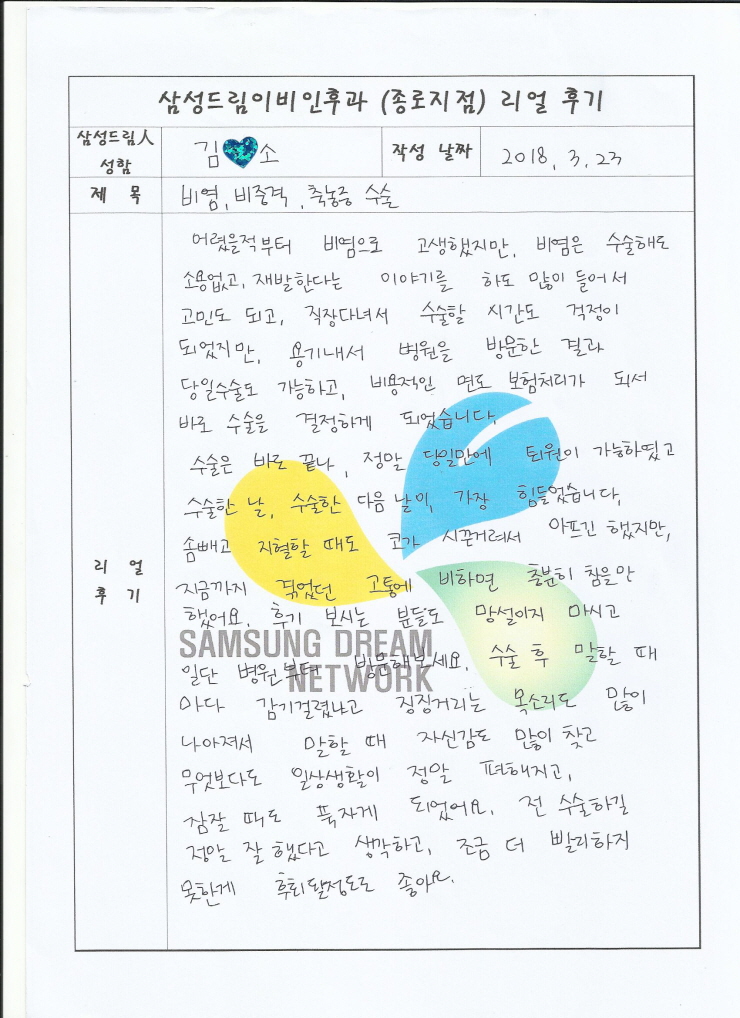 삼성드림이비인후과 (종로지점) 리얼 후기
삼성드림人
성함
김 소
작성 날짜
2018. 3. 23
제 목
비염, 비중격, 축농증 수술
리 얼
후 기
어렸을적부터 비염으로 고생했지만, 비염은 수술해도
소용없고, 재발한다는 이야기를 하도 많이 들어서
고민도 되고, 직장다녀서 수술할 시간도 걱정이
되었지만, 용기내서 병원을 방문한 결과
당일수술도 가능하고, 비용적인 면도 보험처리가 되서
바로 수술을 결정하게 되었습니다.
수술은 바로 끝나, 정말 당일만에 퇴원이 가능하였고
수술한 날, 수술한 다음 날이, 가장 힘들었습니다,
솜빼고 지혈할 때도 코가 시끈거려서 아프긴 했지만,
지금까지 겪었던 고통에 비하면 충분히 참을만
했어요. 후기 보시는 분들도 망설이지 마시고
일단 병원부터 방문해보세요. 수술 후 말할 때
마다 감기걸렸냐고 징징거리는 목소리도 많이
나아져서 말할 때 자신감도 많이 찾고
무엇보다도 일상생활이 정말 편해지고,
잠잘 때도 푹자게 되었어요. 전 수술하길
정말 잘 했다고 생각하고, 조금 더 빨리하지
못한게 후회될정도로 좋아요.
SAMSUNG DREAM
NETWORK